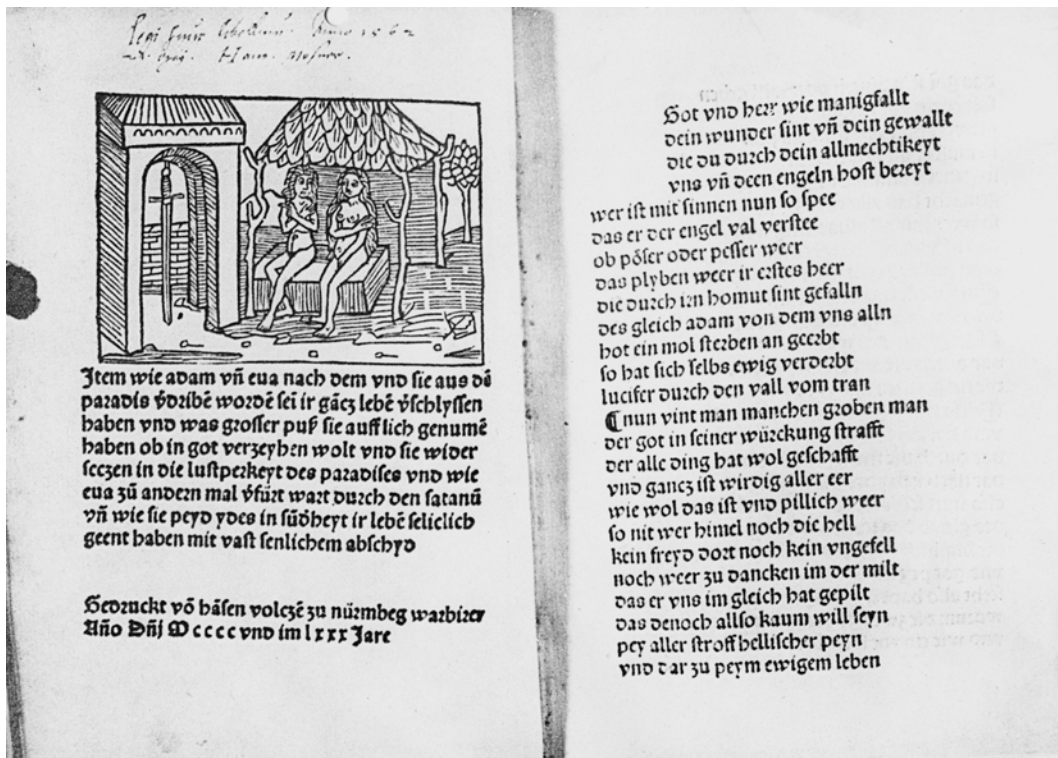 Anno 1562
Item wie adam vn̄ eua nach dem vnd sie aus dē
paradis v̄dribē wordē sei ir gācz lebē v̄schlyssen
haben vnd was grosser puß sie auff sich genumē
haben ob in got verzeyhen wolt vnd sie wider
seczen in die lustperkeyt des paradises vnd wie
eua zū andern mal v̄fürt wart durch den satanū
vn̄ wie sie peyd ydes in sūdheyt ir lebē seliclich
geent haben mit vast senlichem abschyd
Gedruckt vō hāsen volczē zu nürmbeg warbirer
Año Dñi Mcccc vnd im lxxx Jare
Got vnd herr wie manigfallt
dein wunder sint vn̄ dein gewallt
die du durch dein allmechtikeyt
vns vn̄ deen engeln host bereyt
wer ist mit sinnen nun so spee
das er der engel val verstee
ob pöser oder pesser weer
das plyben weer ir erstes heer
die durch irn homut sint gefalln
des gleich adam von dem vns alln
hot ein mol sterben an geerbt
so hat sich selbs ewig verderbt
lucifer durch den vall vom tran
¶ nun vint man manchen groben man
der got in seiner würckung strafft
der alle ding hat wol geschafft
vnd gancz ist wirdig aller eer
wie wol das ist vnd pillich weer
so nit wer himel noch die hell
kein freyd dort noch kein vngefell
noch weer zu dancken im der milt
das er vns im gleich hat gepilt
das dennoch allso kaum will seyn
pey aller stroff hellischer peyn
vnd dar zu peym ewigem leben